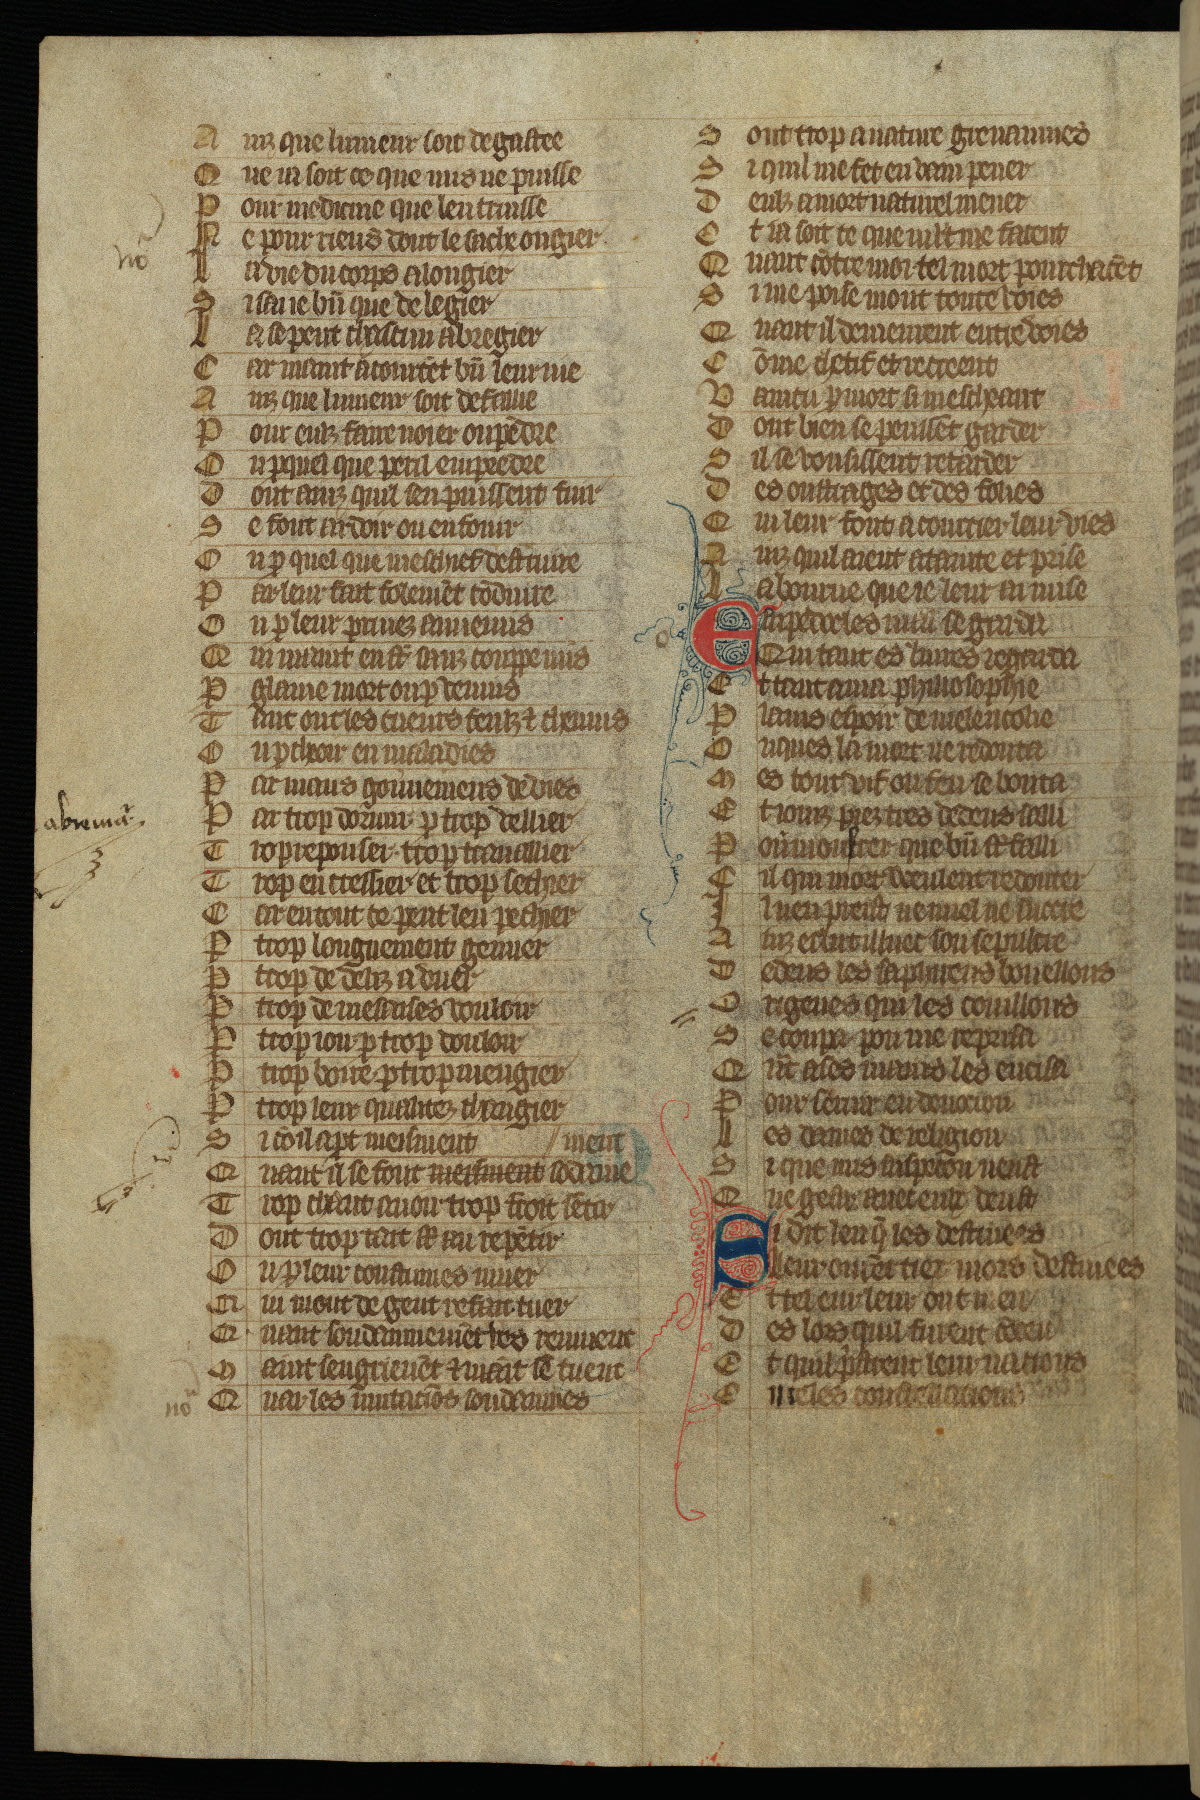 A inz que lumeur soit degastee
Q ue ia soit ce que nus ne puisse
P our medicine que len truisse
N e pour riens dont le sache ongier
L a vie du corps alongier
S i sai ie bn̄ que de legier
L a se peut chascun abregier
C ar maint acourcēt bn̄ leur uie
A inz que lumeur soit defaillie
P our eulz faire noier ou pēdre
O u p quel que peril emprēdre
D ont ainz quil sen puissent fuir
S e font ardoir ou enfouir
O u p quel que meschief destruire
P ar leur fait folemēt cōduire
O u p leur priuez annemis
Q ui maint en st̄ sanz couppe mis
P glaiue mort ou p venins
T ant ont les cueurs fculz ⁊ chenins
O u p cheoir en maladies
P ar mauis gouuernemens de vies
P ar trop dormir p trop veillier
T rop reposer trop trauaillier
T rop encressier et trop sechier
C ar en tout ce peut len pechier
P trop longuement geuner
P trop de deliz aduner
P trop de mesaises vouloir
P trop ioir p trop douloir
P trop boire p trop mengier
P trop leur qualitez changier
S i cō il apt meisment // ment
Q uant il se font meisment sodaine
T rop chaut auoir trop froit sētir
D ont trop tart st̄ au repētir
O u p leur coustumes muer
Q ui mout de gent refait tuer
Q uant soudainnemēt les remuent
M aint sen grieuēt ⁊ maīt sē tuent
Q uar les mutaciōs soudainnes
S ont trop a nature greuainnes
S i quil me fet en vain pener
D eulz a mort naturel mener
E t ia soit ce que mlt̄ me facent
Q uant cōtre moi tel mort pourchacēt
S i me poise mout toute voies
Q uant il demeurent entre voies
C ōme chetif et recreent
V aincu p mort si mescheant
D ont bien se peussēt garder
S il se vousissent retarder
D es outtrages et des folies
Q ui leur font acourcier leur vies
A inz quil aient atainte et prise
L a bourne que ie leur ai mise
Empedocles mal se garda
Q ui tant es liures regarda
E t tant ama philosophie
P lains espoir de melencolie
O nques la mort ne redouta
M es tout vif ou feu se bouta
E t ioinz piez tres dedens sailli
P our monstrer que bn̄ st̄ failli
C il qui mort veulent redouter
I l nen preist ne miel ne sucre
A inz eslut illuec son sepulcre
D edens les saphirens bouellons
O rigenes qui les couillons
S e coupa pou me reprisa
Q nt̄ a ses mains les encisa
P our seruir en deuocion
L es dames de religion
S i que nus suspecōn neust
Q ue gesir auec eulz deust
Si dit len q̄ les destinees
Leur orrēt tiex mors destinees
E t tel eur leur ont meu
D es lors quil furent cōceu
E t quil pristrent leur nacions
E n teles constellacions